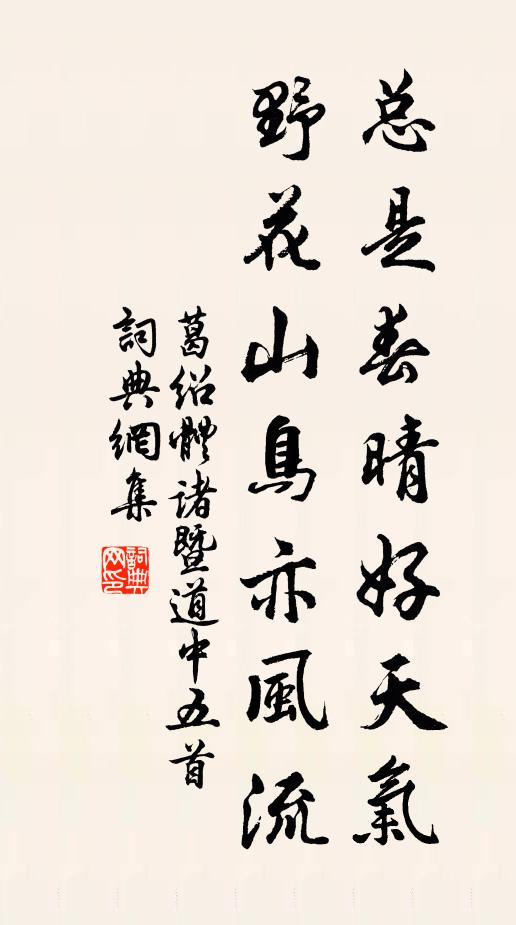 总是春晴好天氣
野花山鳥亦風流
葛绍體诸暨道中五首
詞典網集
詞典网印